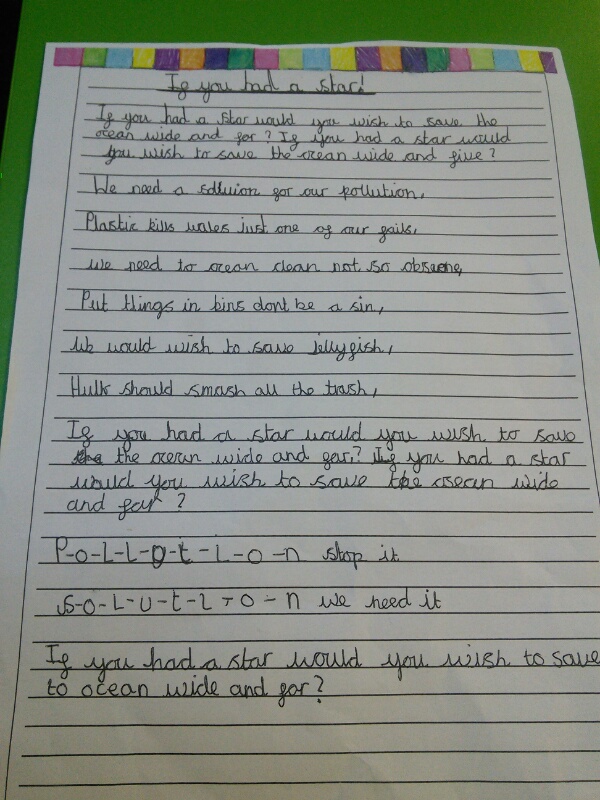 If you had a star!
If you had a star would you wish to save the
ocean wide and far? If you had a star would
you wish to save the ocean wide and five?
We need a solluion for our pollution,
Plastic kills wales just one of our fails,
we need to ocean clean not so obscene,
Put things in bins dont be a sin,
We would wish to save jellyfish,
Hulk should smash all the trash,
If you had a star would you wish to save
the ocean wide and far? If you had a star
would you wish to save the osean wide
and far?
P-o-L-L-U-t-i-o-n stop it
S-O-L-U-t-I-o-n we need it
If you had a star would you wish to save
to ocean wide and far?